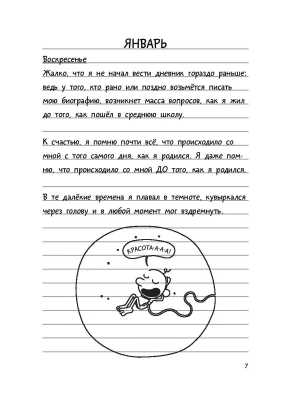 ЯНВАРЬ
Воскресенье
Жалко, что я не начал вести дневник гораздо раньше:
ведь у того, кто рано или поздно возьмётся писать
мою биографию, возникнет масса вопросов, как я жил
до того, как пошёл в среднюю школу.
К счастью, я помню почти всё, что происходило со
мной с того самого дня, как я родился. Я даже пом-
ню, что происходило со мной ДО того, как я родился.
В те далёкие времена я плавал в темноте, кувыркался
через голову и в любой момент мог вздремнуть.
КРАСОТА-А-А-А!
7